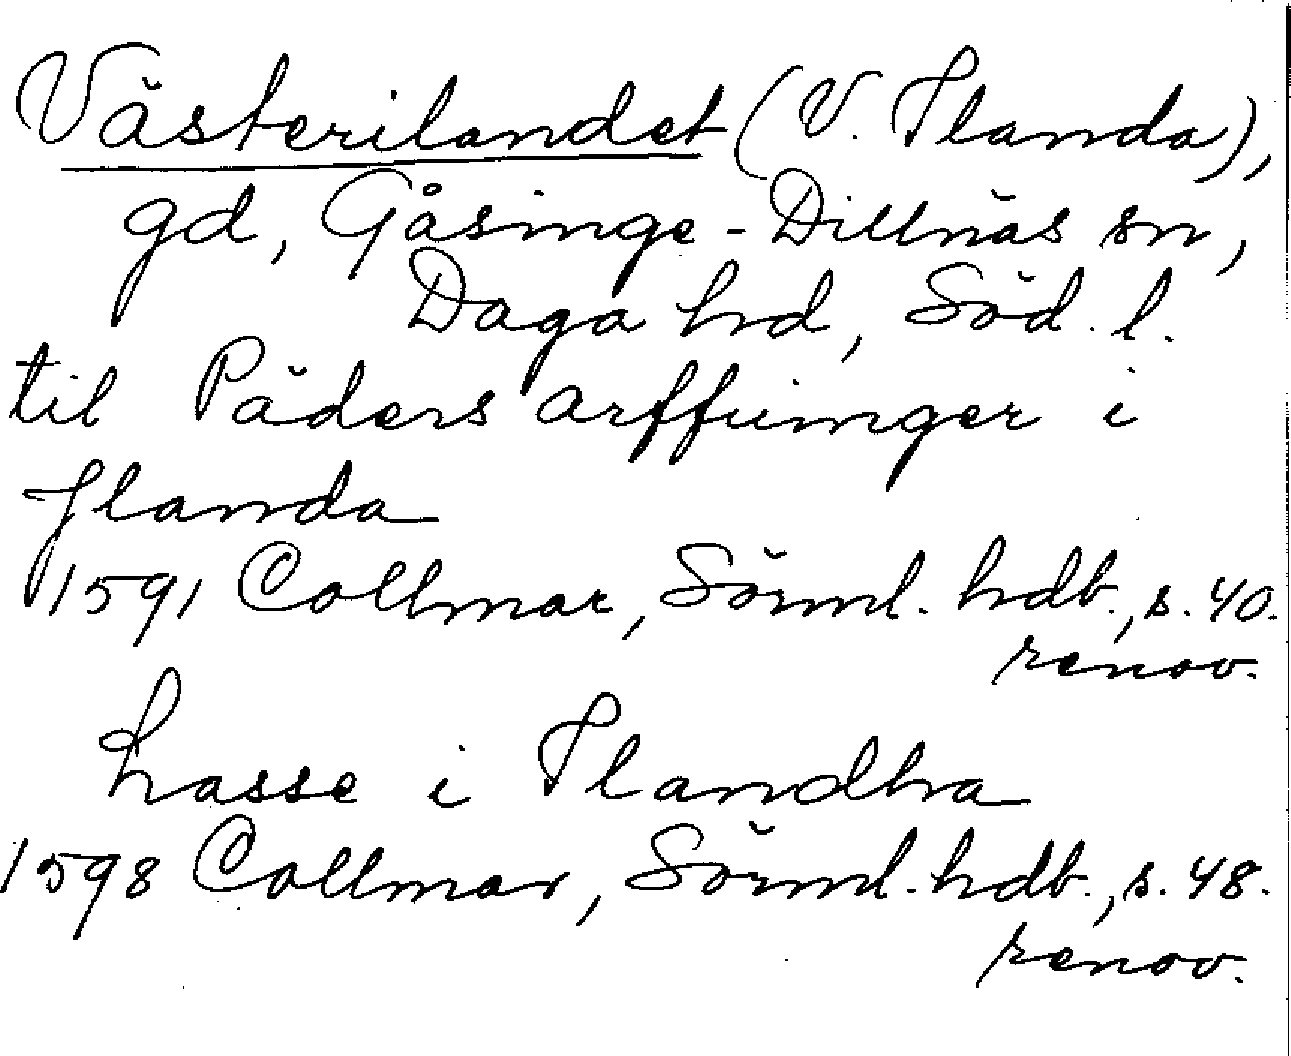 Västerilandet (V. Ilanda),
gd, Gåsinge-Dillnäs sn,
Daga hd, Söd. l.
til Päders arffuinger i
Jlanda
1591 Collmar, Sörml. hdb., s. 40.
renov.
Lasse i Ilandha
1598 Collmar, Sörml. hdb., s. 48.
renov.